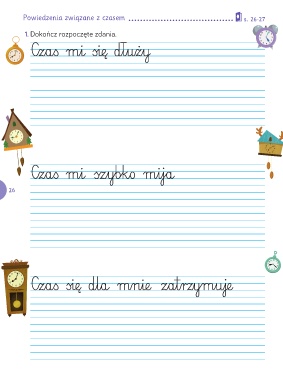 Powiedzenia związane z czasem ........................... s. 26-27
1. Dokończ rozpoczęte zdania.
Czas mi się dłuży
Czas mi szybko mija
26
Czas się dla mnie zatrzymuje